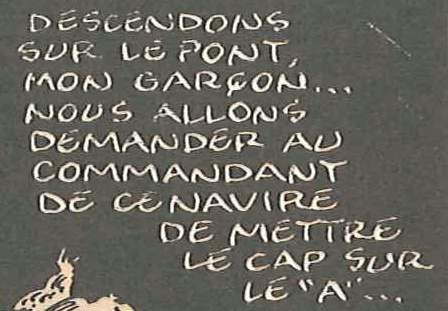 DESCENDONS
SUR LE PONT,
MON GARÇON...
NOUS ALLONS
DEMANDER AU
COMMANDANT
DE CE NAVIRE
DE METTRE
LE CAP SUR
LE "A"...